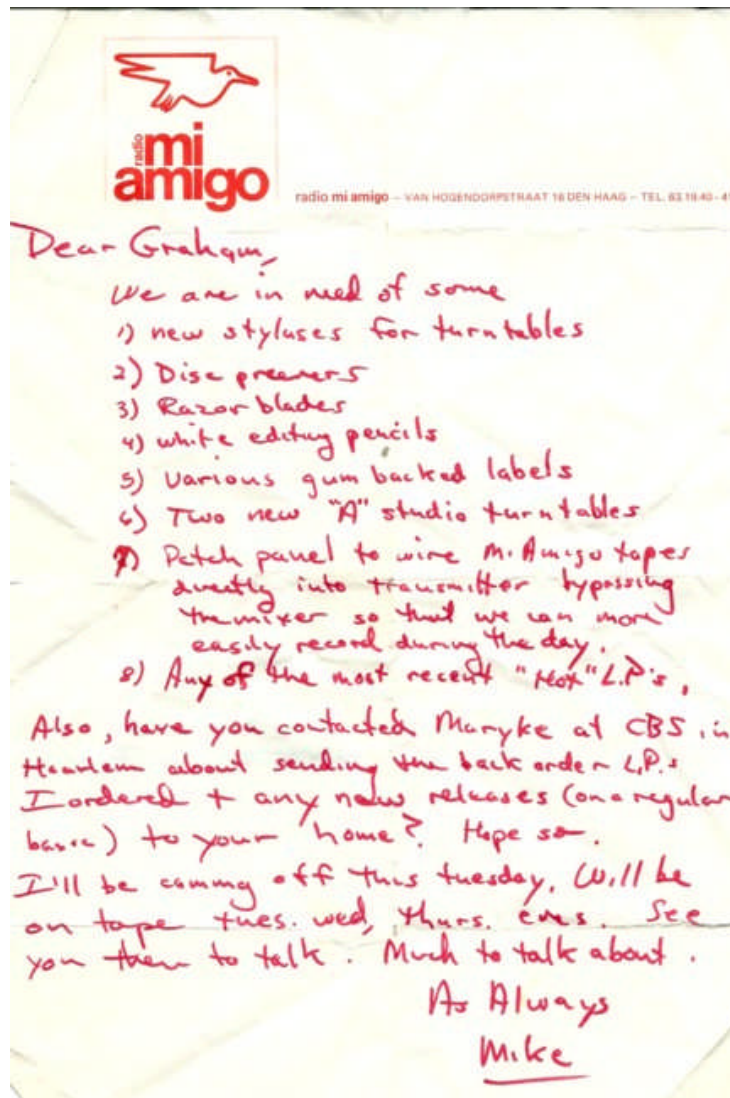 radio
mi
amigo
radio mi amigo – VAN HOGENDORPSTRAAT 16 DEN HAAG – TEL. 63.19.40 - 4
Dear Graham,
We are in need of some
1) new styluses for turntables
2) Disc preeners
3) Razor blades
4) white editing pencils
5) Various gum backed labels
6) Two new "A" studio turntables
7) Patch panel to wire Mi Amigo tapes
directly into transmitter bypassing
the mixer so that we can more
easily record during the day.
8) Any of the most recent "Hot" L.P.'s.
Also, have you contacted Maryke at CBS in
Haarlem about sending the back order L.P.s
I ordered + any new releases (on a regular
basis) to your home? Hope so.
I'll be comming off this tuesday. Will be
on tape tues. wed, thurs. eves. See
you then to talk. Much to talk about.
As Always
Mike